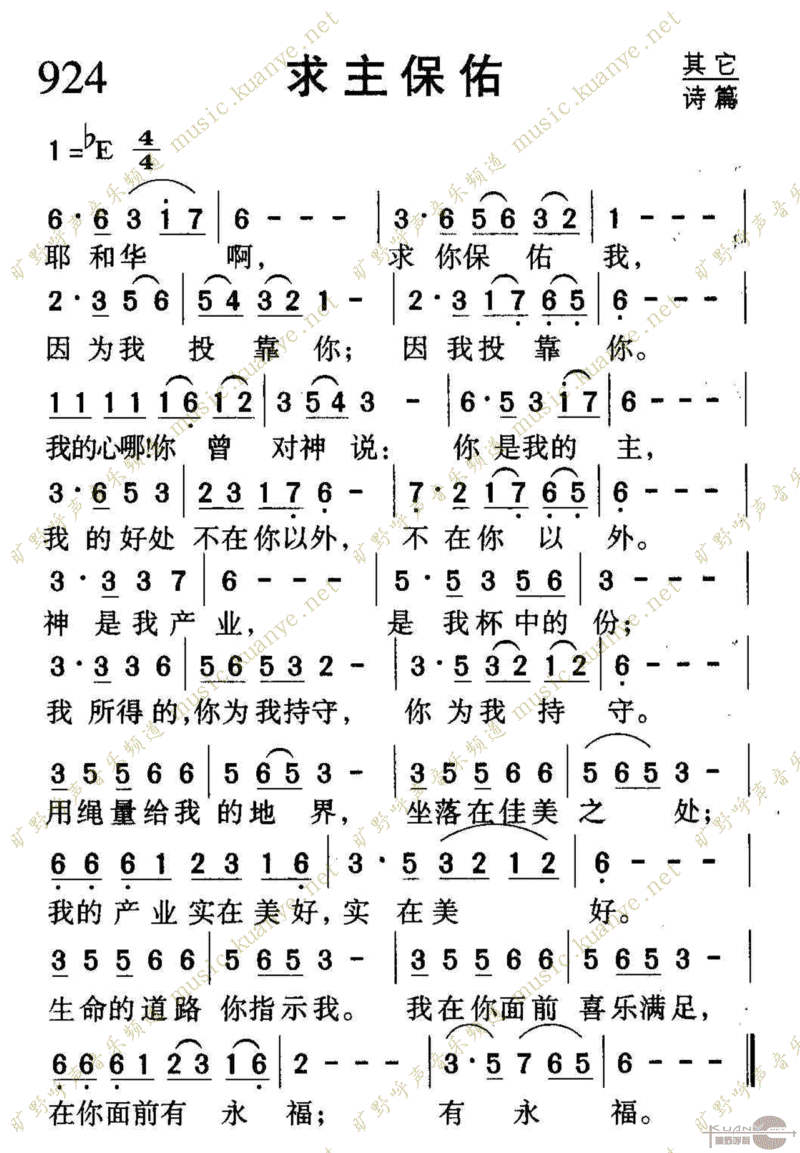 924
求主保佑
其它
诗篇
1=♭E 4/4
6·6 3 i 7 | 6 - - - | 3·6 5 6 3 2 | 1 - - - |
耶和华 啊, 求你保 佑 我,
2·3 5 6 | 5 4 3 2 1 - | 2·3 1 7 6 5 | 6 - - - |
因为我 投 靠 你; 因我投 靠 你。
1 1 1 1 1 6 1 2 | 3 5 4 3 - | 6·5 3 i 7 | 6 - - - |
我的心哪!你 曾 对神 说: 你是我的 主,
3·6 5 3 | 2 3 1 7 6 - | 7·2 1 7 6 5 | 6 - - - |
我的好处 不在你以外, 不在你 以 外。
3·3 3 7 | 6 - - - | 5·5 3 5 6 | 3 - - - |
神是我产 业, 是我杯中的 份;
3·3 3 6 | 5 6 5 3 2 - | 3·5 3 2 1 2 | 6 - - - |
我所得的,你为我持守, 你为我 持 守。
3 5 5 6 6 | 5 6 5 3 - | 3 5 5 6 6 | 5 6 5 3 - |
用绳量给我 的地 界, 坐落在佳美 之 处;
6 6 6 1 2 3 1 6 | 3·5 3 2 1 2 | 6 - - - |
我的产业实在美好,实在美 好。
3 5 5 6 6 | 5 6 5 3 - | 3 5 5 6 6 | 5 6 5 3 - |
生命的道路 你指示我。 我在你面前 喜乐满足,
6 6 6 1 2 3 1 6 | 2 - - - | 3·5 7 6 5 | 6 - - - ‖
在你面前有 永 福; 有 永 福。
旷野呼声音乐频道 music.kuanye.net
KUANYE
旷野呼声